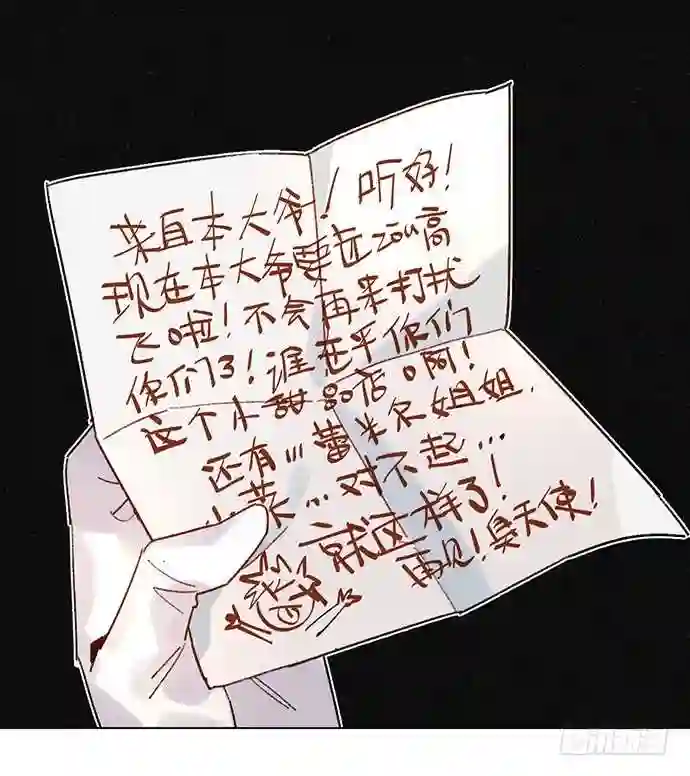 来自本大爷！听好！
现在本大爷要远zou高
飞啦！不会再来打扰
你们了！谁在乎你们
这个小甜品店啊！
还有…蕾米尔姐姐，
小菜…对不起…
就这样了！
再见！臭天使！